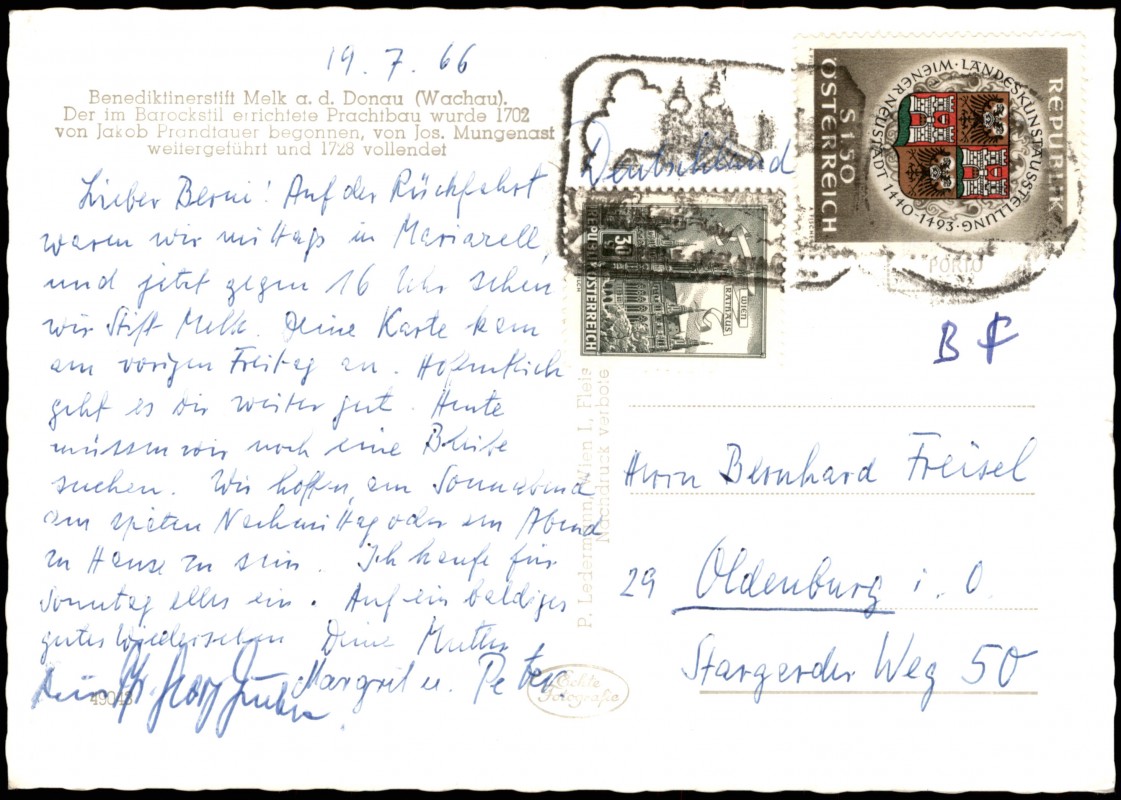 19. 7. 66
Benediktinerstift Melk a. d. Donau (Wachau).
Der im Barockstil errichtete Prachtbau wurde 1702
von Jakob Prandtauer begonnen, von Jos. Mungenast
weitergeführt und 1728 vollendet
Lieber Berni! Auf der Rückfahrt
waren wir mittags in Mariazell,
und jetzt gegen 16 Uhr sehen
wir Stift Melk. Deine Karte kam
am vorigen Freitag an. Hoffentlich
geht es Dir weiter gut. Heute
müssen wir noch eine Bleibe
suchen. Wir hoffen, am Sonnabend
am späten Nachmittag oder am Abend
zu Hause zu sein. Ich kaufe für
Sonntag alles ein. Auf ein baldiges
gutes Wiedersehen Deine Mutter
Margret u. Peter
49043
Echte
Fotografie
P. Ledermann, Wien I., Fleis
Nachdruck verbote
Deutschland
REPUBLIK
ÖSTERREICH
S 1.50
LANDESKUNSTAUSSTELLUNG · WIENER NEUSTADT 1440-1493
REPUBLIK ÖSTERREICH
30
WIEN
RATHAUS
PORTO
B F
Herrn Bernhard Freisel
29 Oldenburg i. O.
Stargarder Weg 50